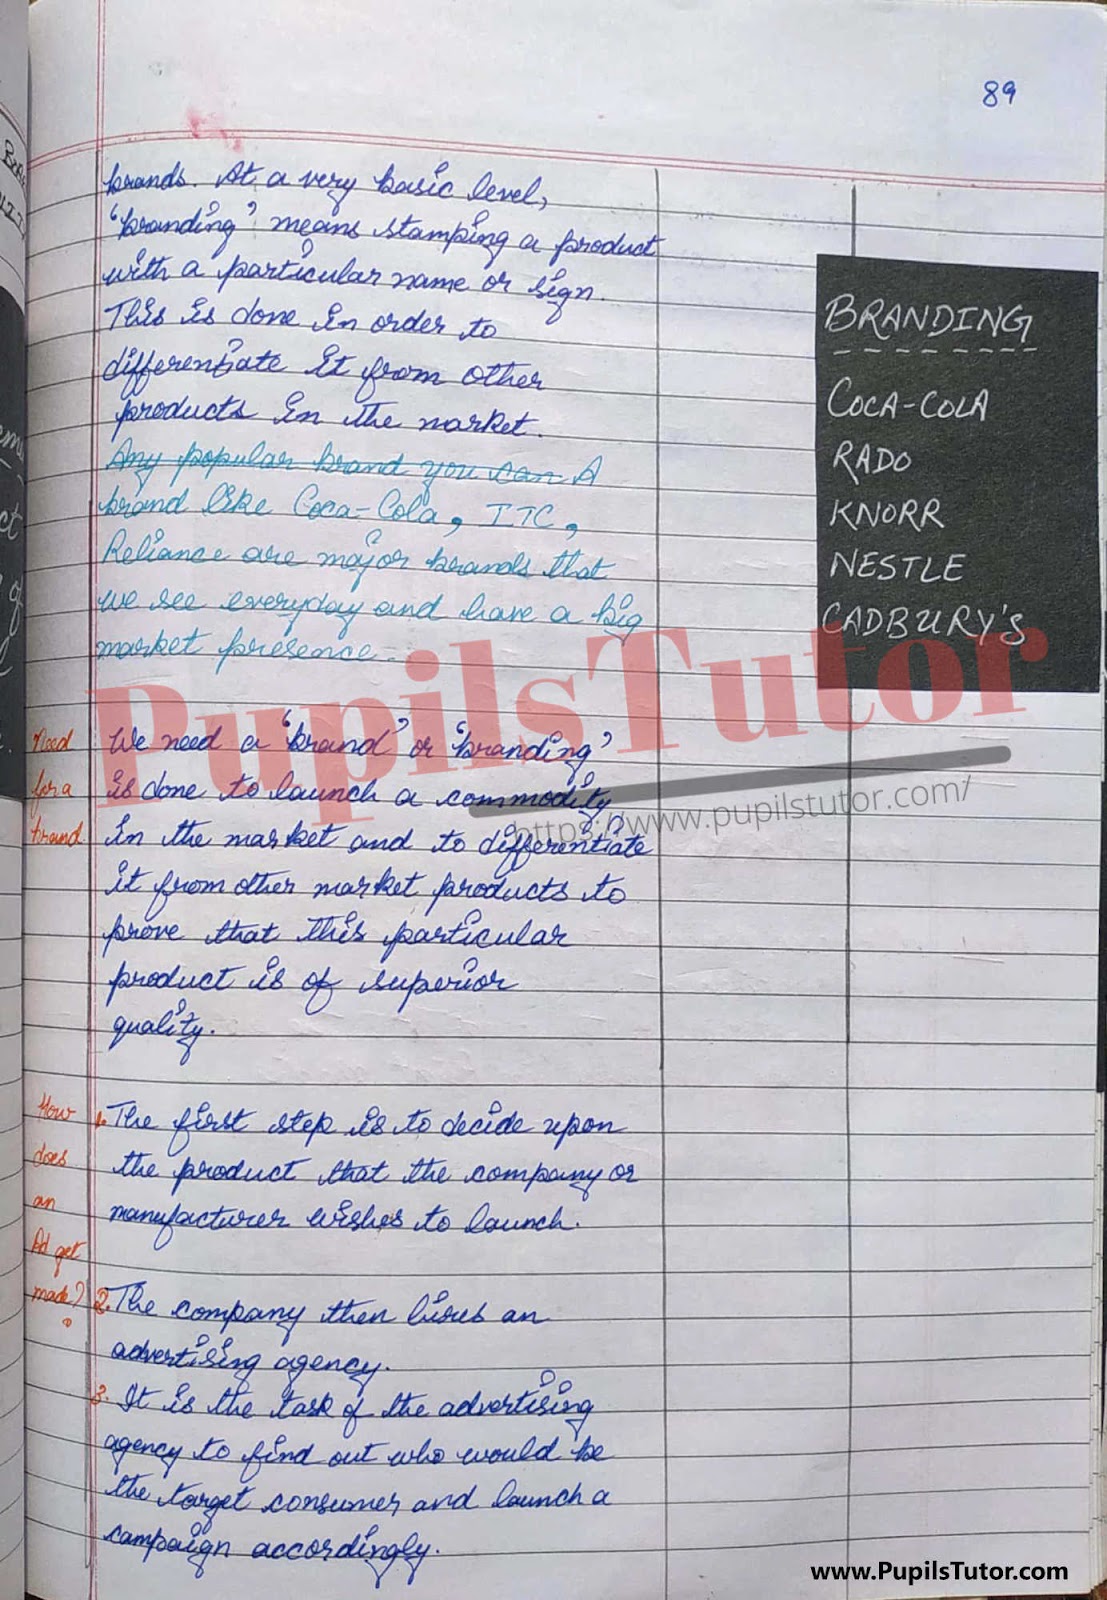 89
brands. At a very basic level,
'branding' means stamping a product
with a particular name or sign.
This is done in order to
differentiate it from other
products in the market.
Any popular brand you can A
brand like Coca-Cola, ITC,
Reliance are major brands that
we see everyday and have a big
market presence.
BRANDING
COCA-COLA
RADO
KNORR
NESTLE
CADBURY'S
PupilsTutor
https://www.pupilstutor.com/
Need
for a
brand
We need a 'brand' or 'branding'
is done to launch a commodity
in the market and to differentiate
it from other market products to
prove that this particular
product is of superior
quality.
How
does
an
Ad get
made?
1. The first step is to decide upon
the product that the company or
manufacturer wishes to launch.
2. The company then hires an
advertising agency.
3. It is the task of the advertising
agency to find out who would be
the target consumer and launch a
campaign accordingly.
www.PupilsTutor.com